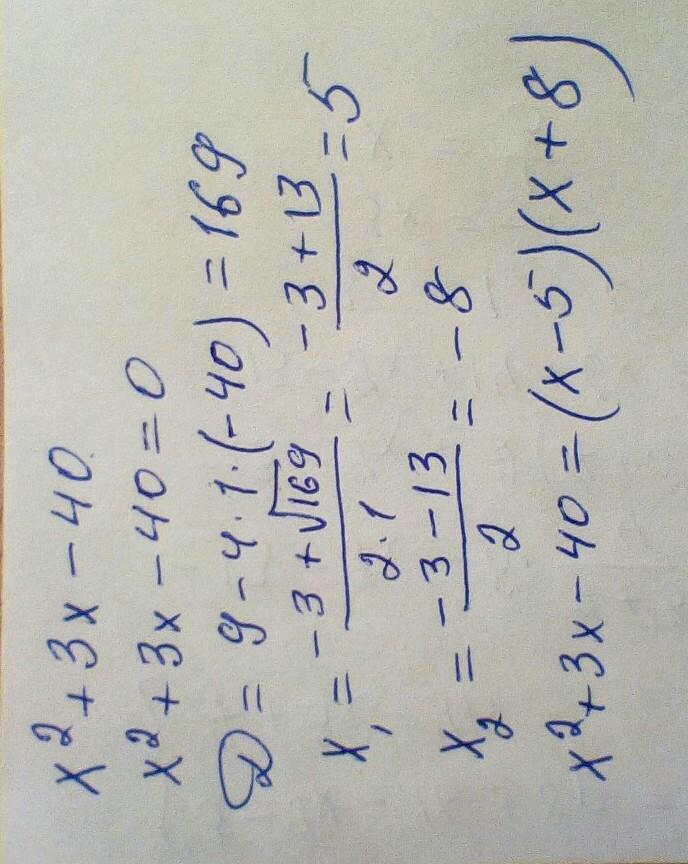 x²+3x-40
x²+3x-40=0
D=9-4·1·(-40)=169
x₁=(-3+√169)/(2·1)=(-3+13)/2=5
x₂=(-3-13)/2=-8
x²+3x-40=(x-5)(x+8)